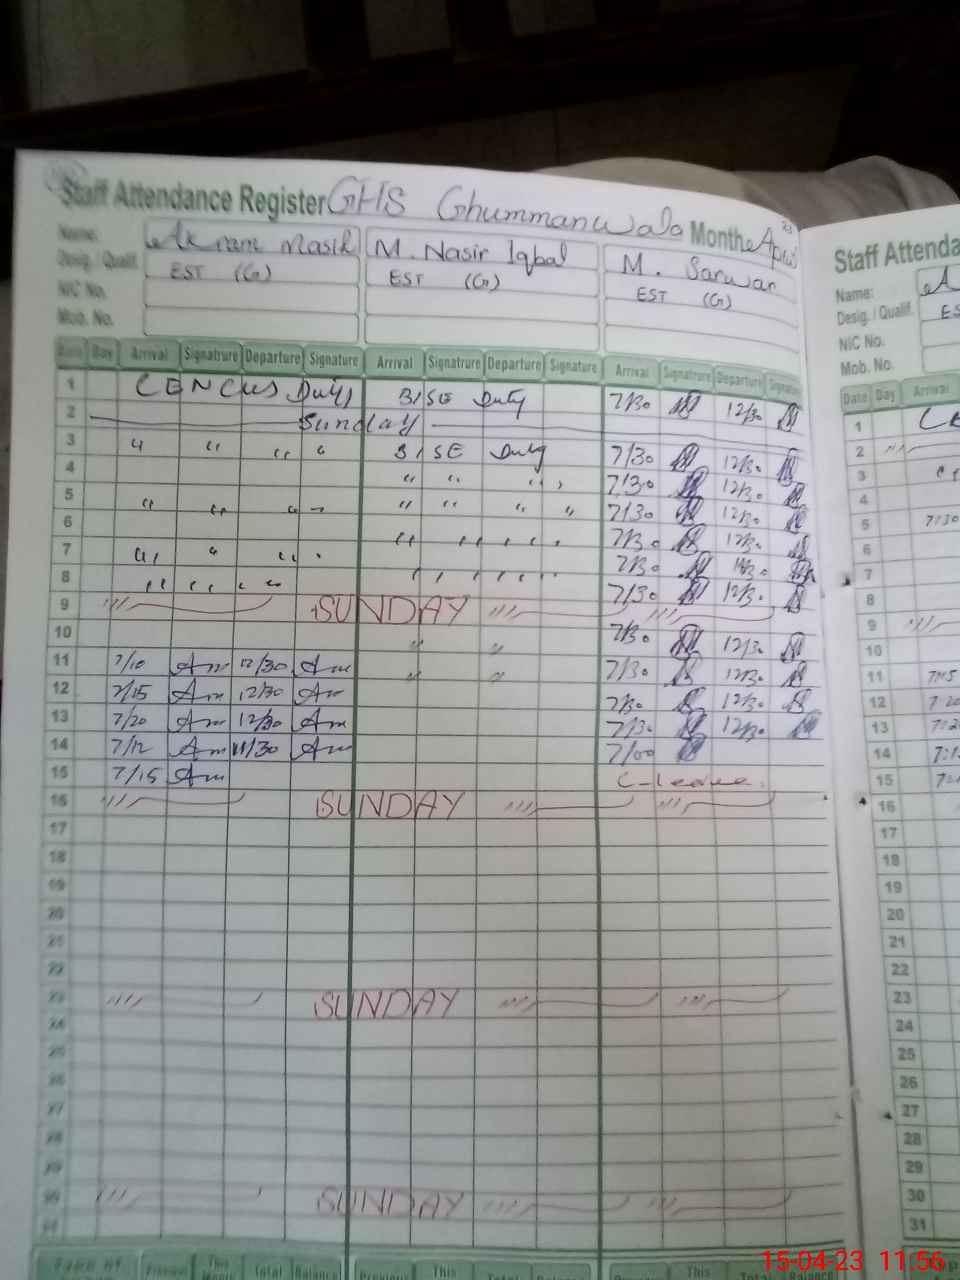 Staff Attendance Register GHS Ghummanwala Month April 23
Name: Akram Masih M. Nasir Iqbal M. Sarwar
Desig. / Qualif. EST (G) EST (G) EST (G)
NIC No.
Mob. No.
Date Day Arrival Signatrure Departure Signature Arrival Signatrure Departure Signature Arrival Signatrure Departure Signature
1 CENCUS Duty BISE Duty 7/30 12/30
2 Sunday
3 " " " " BISE Duty 7/30 12/30
4 " " " " 7/30 12/30
5 " " " " " " " 7/30 12/30
6 " " " " " 7/30 12/30
7 " " " " 7/30
8 " " " " " " " " " 7/30 12/30
9 SUNDAY
10 " " 7/30 12/30
11 7/10 Am 12/30 Am " " 7/30 12/30
12 7/15 Am 12/30 Am 7/30 12/30
13 7/20 Am 12/30 Am 7/30 12/30
14 7/12 Am 11/30 Am 7/00
15 7/15 Am C-leave.
16 SUNDAY
17
18
19
20
21
22
23 SUNDAY
24
25
26
27
28
29
30 SUNDAY
31
Total Balance Previous This
Staff Attenda
Name: A
Desig. / Qualif. ES
NIC No.
Mob. No.
Date Day Arrival
1 CE
2
3
4
5 7:30
6
7
8
9
10
11
12
13
14
15
16
17
18
19
20
21
22
23
24
25
26
27
28
29
30
31
15-04-23 11:56